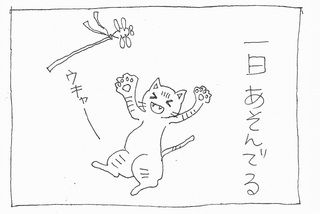 一日あそんでる
ウキャー